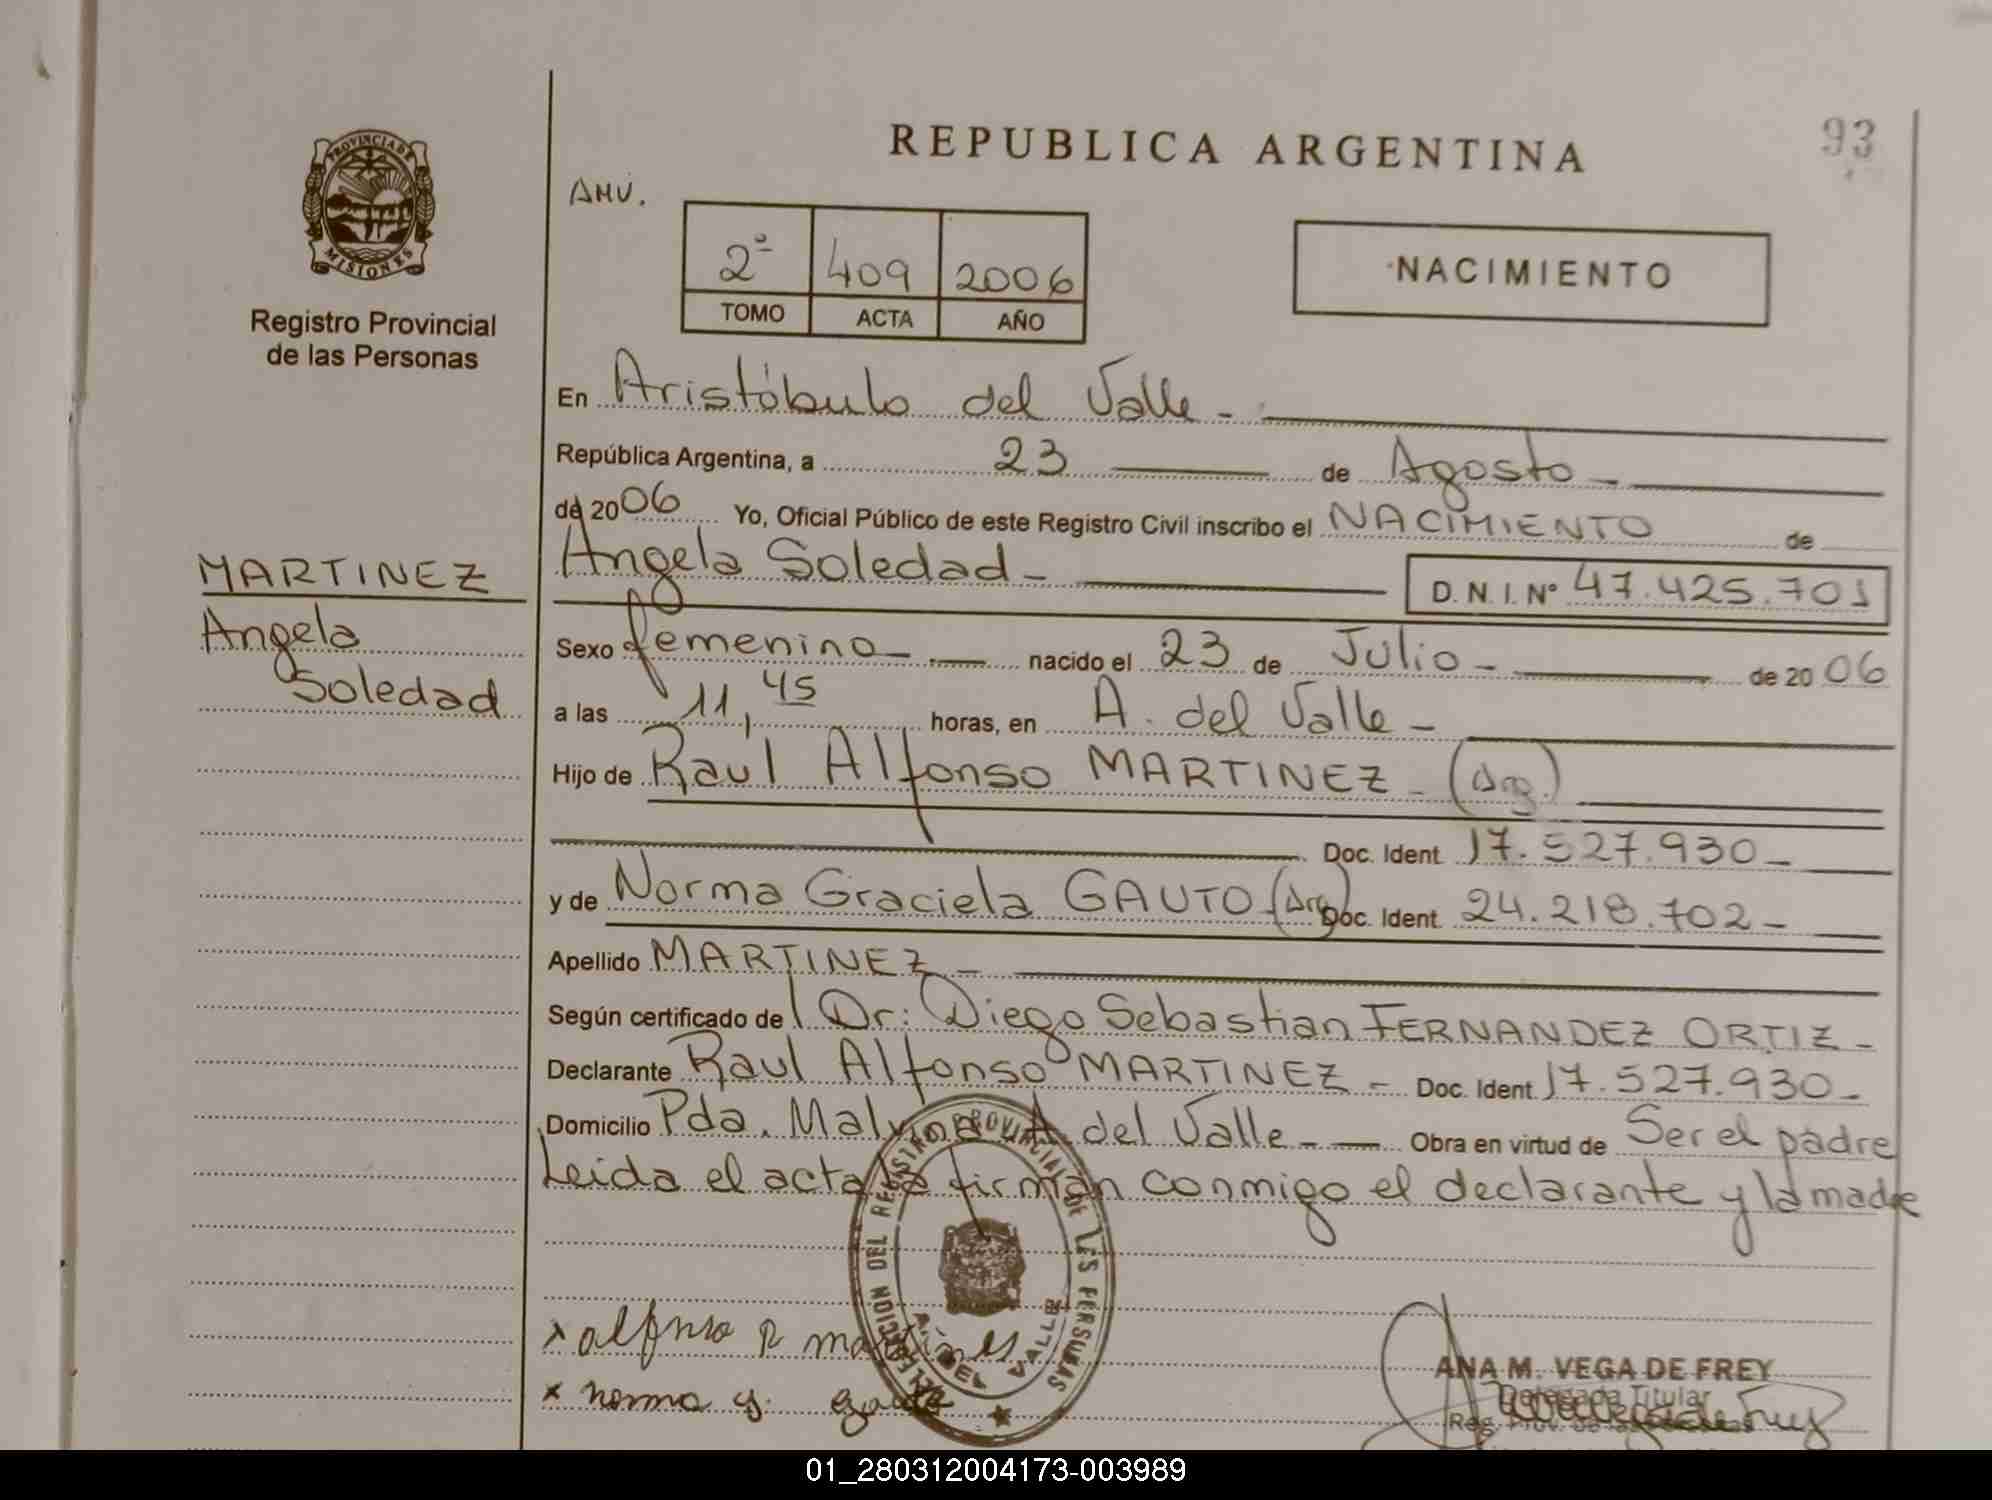 REPUBLICA ARGENTINA
93
PROVINCIA DE
MISIONES
Registro Provincial
de las Personas
AMV.
2º 409 2006
TOMO ACTA AÑO
NACIMIENTO
En Aristóbulo del Valle -
República Argentina, a 23 de Agosto -
de 2006 Yo, Oficial Público de este Registro Civil inscribo el NACIMIENTO de
MARTINEZ
Angela
Soledad
Angela Soledad -
D.N.I. Nº 47.425.701
Sexo femenino - nacido el 23 de Julio - de 2006
a las 11,45 horas, en A. del Valle -
Hijo de Raúl Alfonso MARTINEZ - (Arg.)
Doc. Ident. 17.527.930 -
y de Norma Graciela GAUTO - (Arg) Doc. Ident. 24.218.702 -
Apellido MARTINEZ -
Según certificado de l Dr: Diego Sebastian FERNANDEZ ORTIZ -
Declarante Raul Alfonso MARTINEZ - Doc. Ident. 17.527.930 -
Domicilio Pda. Malvina A. del Valle - Obra en virtud de Ser el padre
Leida el acta la firman conmigo el declarante y la madre
DELEGACION DEL REGISTRO PROVINCIAL DE LAS PERSONAS
A. DEL VALLE
x alfonso R martines
x norma g. gauto
ANA M. VEGA DE FREY
Delegada Titular
01_280312004173-003989